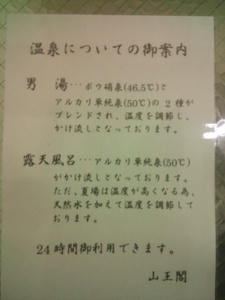 温泉についての御案内
男　湯…ボウ硝泉(46.5℃)と
アルカリ単純泉(50℃)の2種が
ブレンドされ、温度を調節し、
かけ流しとなっております。
露天風呂…アルカリ単純泉(50℃)
がかけ流しとなっております。
ただ、夏場は温度が高くなる為、
天然水を加えて温度を調節して
おります。
24時間御利用できます。
山王閣